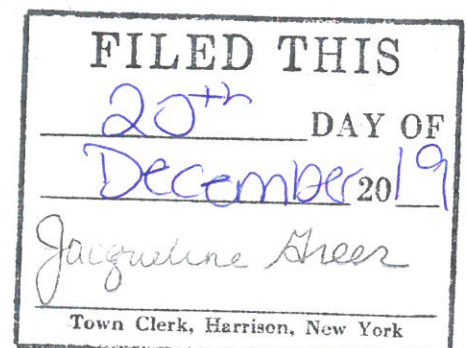 FILED THIS
20th DAY OF
December 2019
Jacqueline Greer
Town Clerk, Harrison, New York